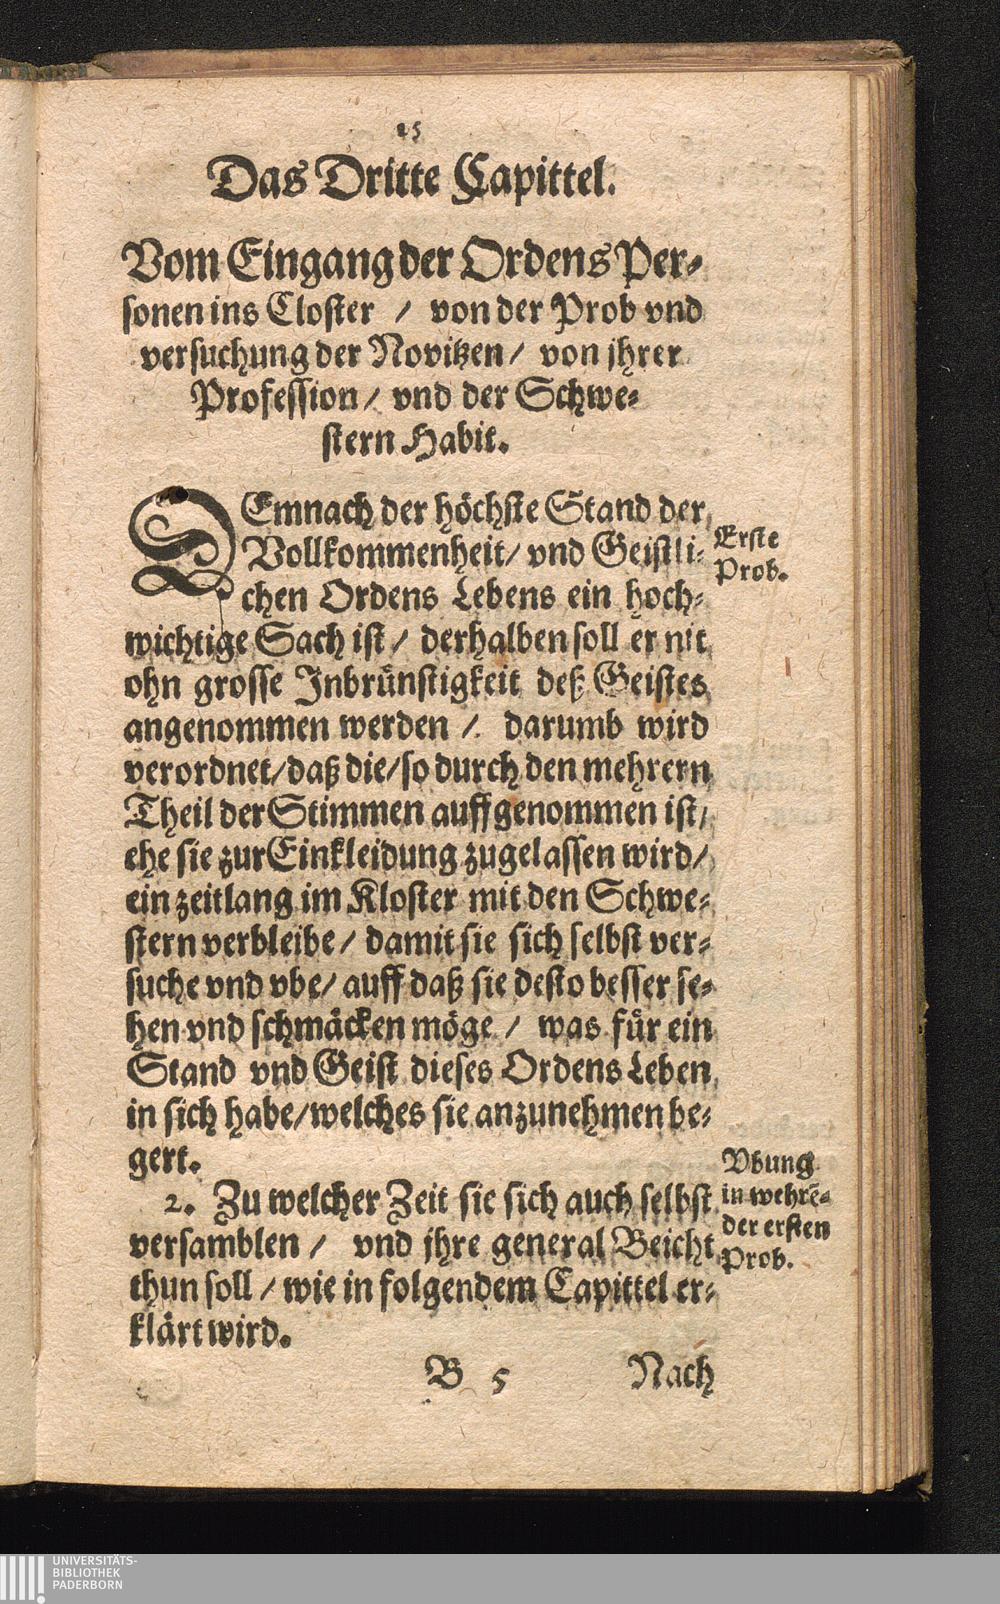 25
Das Dritte Capittel.
Vom Eingang der Ordens Per-
sonen ins Closter / von der Prob vnd
versuchung der Novitzen / von jhrer
Profession / vnd der Schwe-
stern Habit.
DEmnach der höchste Stand der
Vollkommenheit / vnd Geistli-
chen Ordens Lebens ein hoch-
wichtige Sach ist / derhalben soll er nit
ohn grosse Inbrünstigkeit deß Geistes
angenommen werden / darumb wird
verordnet / daß die / so durch den mehrern
Theil der Stimmen auffgenommen ist /
ehe sie zur Einkleidung zugelassen wird /
ein zeitlang im Kloster mit den Schwe-
stern verbleibe / damit sie sich selbst ver-
suche vnd vbe / auff daß sie desto besser se-
hen vnd schmäcken möge / was für ein
Stand vnd Geist dieses Ordens Leben
in sich habe / welches sie anzunehmen be-
gert.
2. Zu welcher Zeit sie sich auch selbst
versamblen / vnd jhre general Beicht
thun soll / wie in folgendem Capittel er-
klärt wird.
Erste
Prob.
Vbung
in wehrē-
der ersten
Prob.
B 5 Nach
UNIVERSITÄTS-
BIBLIOTHEK
PADERBORN